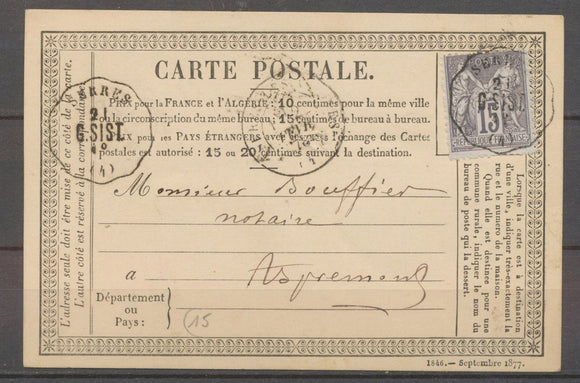 CARTE POSTALE.
PRIX pour la FRANCE et l'ALGÉRIE: 10 centimes pour la même ville
ou la circonscription du même bureau; 15 centimes de bureau à bureau.
PRIX pour les PAYS ÉTRANGERS avec lesquels l'échange des Cartes
postales est autorisé: 15 ou 20 centimes suivant la destination.
Monsieur Bouffier
notaire
a Aspremont
Département
ou
Pays:
15
L'adresse seule doit être mise de ce côté de la carte.
L'autre côté est réservé à la correspondance.
Lorsque la carte est à destination
d'une ville, indiquer très-exactement la
rue et le numéro de la maison.
Quand elle est destinée pour une
commune rurale, indiquer le nom du
bureau de poste qui la dessert.
SERRES
21
G.SIST.
(4)
SERRES
21
G.SIST.
15
FRANÇAISE
1846.— Septembre 1877.